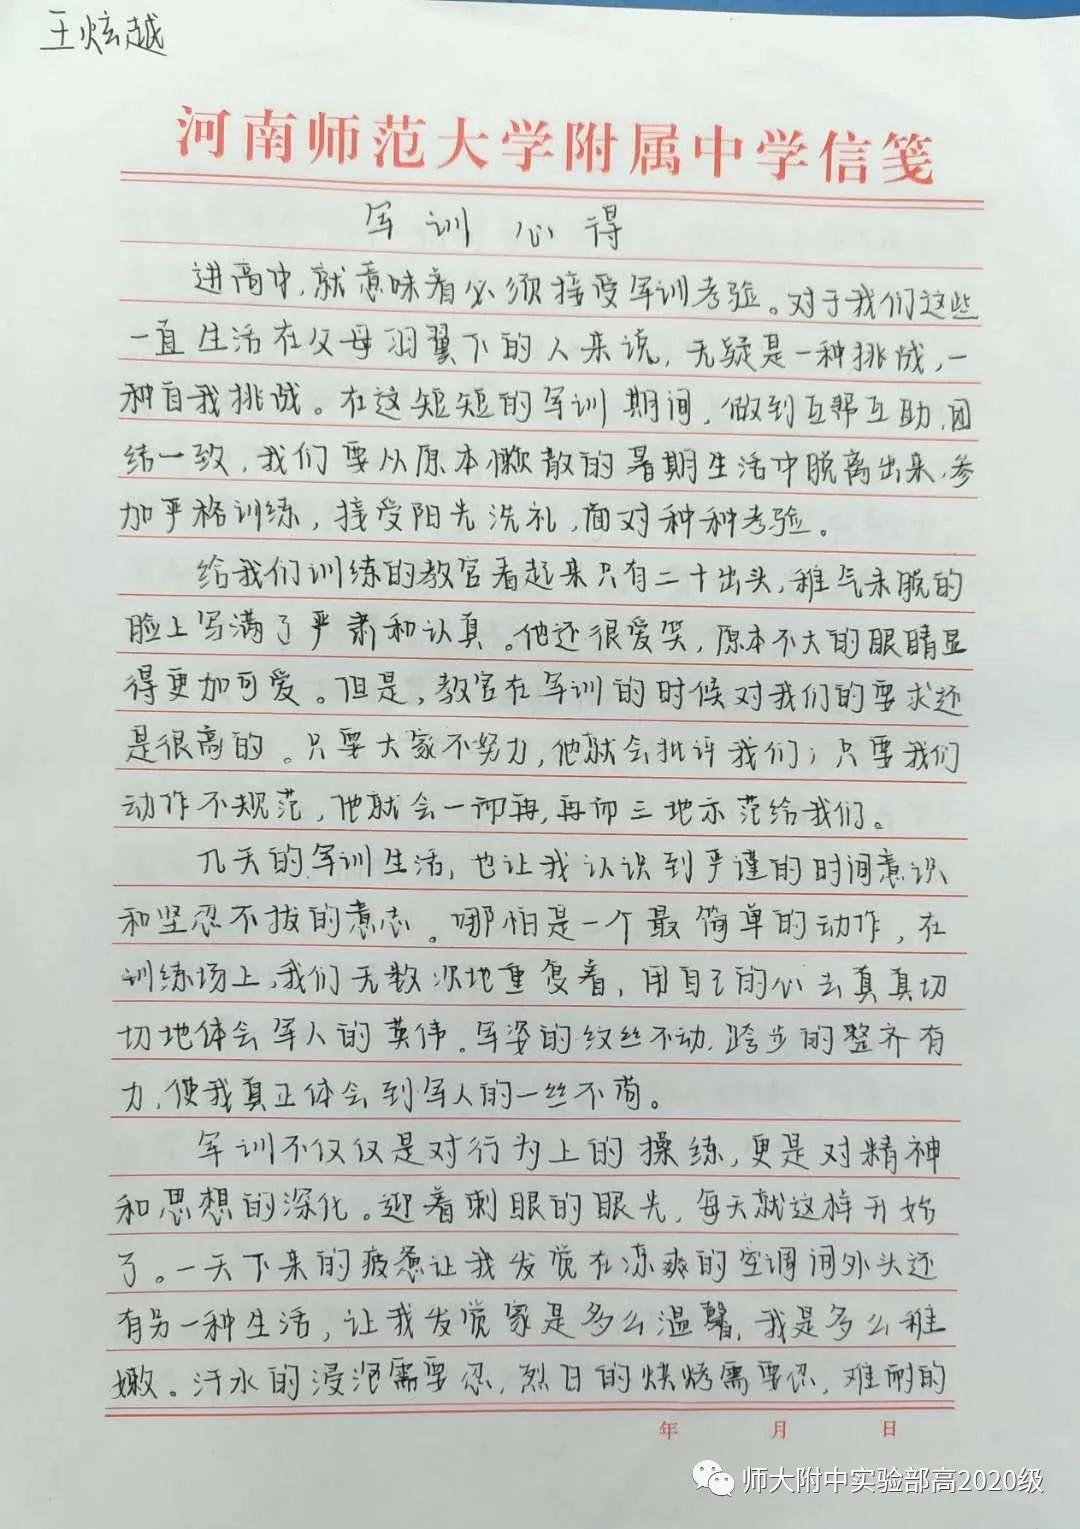 王炫越
河南师范大学附属中学信笺
军训心得
进高中,就意味着必须接受军训考验。对于我们这些
一直生活在父母羽翼下的人来说,无疑是一种挑战,一
种自我挑战。在这短短的军训期间,做到互帮互助,团
结一致,我们要从原本懒散的暑期生活中脱离出来,参
加严格训练,接受阳光洗礼,面对种种考验。
给我们训练的教官看起来只有二十出头,稚气未脱的
脸上写满了严肃和认真。他还很爱笑,原本不大的眼睛显
得更加可爱。但是,教官在军训的时候对我们的要求还
是很高的。只要大家不努力,他就会批评我们;只要我们
动作不规范,他就会一而再,再而三地示范给我们。
几天的军训生活,也让我认识到严谨的时间意识
和坚忍不拔的意志。哪怕是一个最简单的动作,在
训练场上,我们无数次地重复着,用自己的心去真真切
切地体会军人的英伟。军姿的纹丝不动,跨步的整齐有
力,使我真正体会到军人的一丝不苟。
军训不仅仅是对行为上的操练,更是对精神
和思想的深化。迎着刺眼的眼光,每天就这样开始
了。一天下来的疲惫让我发觉在凉爽的空调间外头还
有另一种生活,让我发觉家是多么温馨,我是多么稚
嫩。汗水的浸泡需要忍,烈日的烘烤需要忍,难耐的
年 月 日
师大附中实验部高2020级